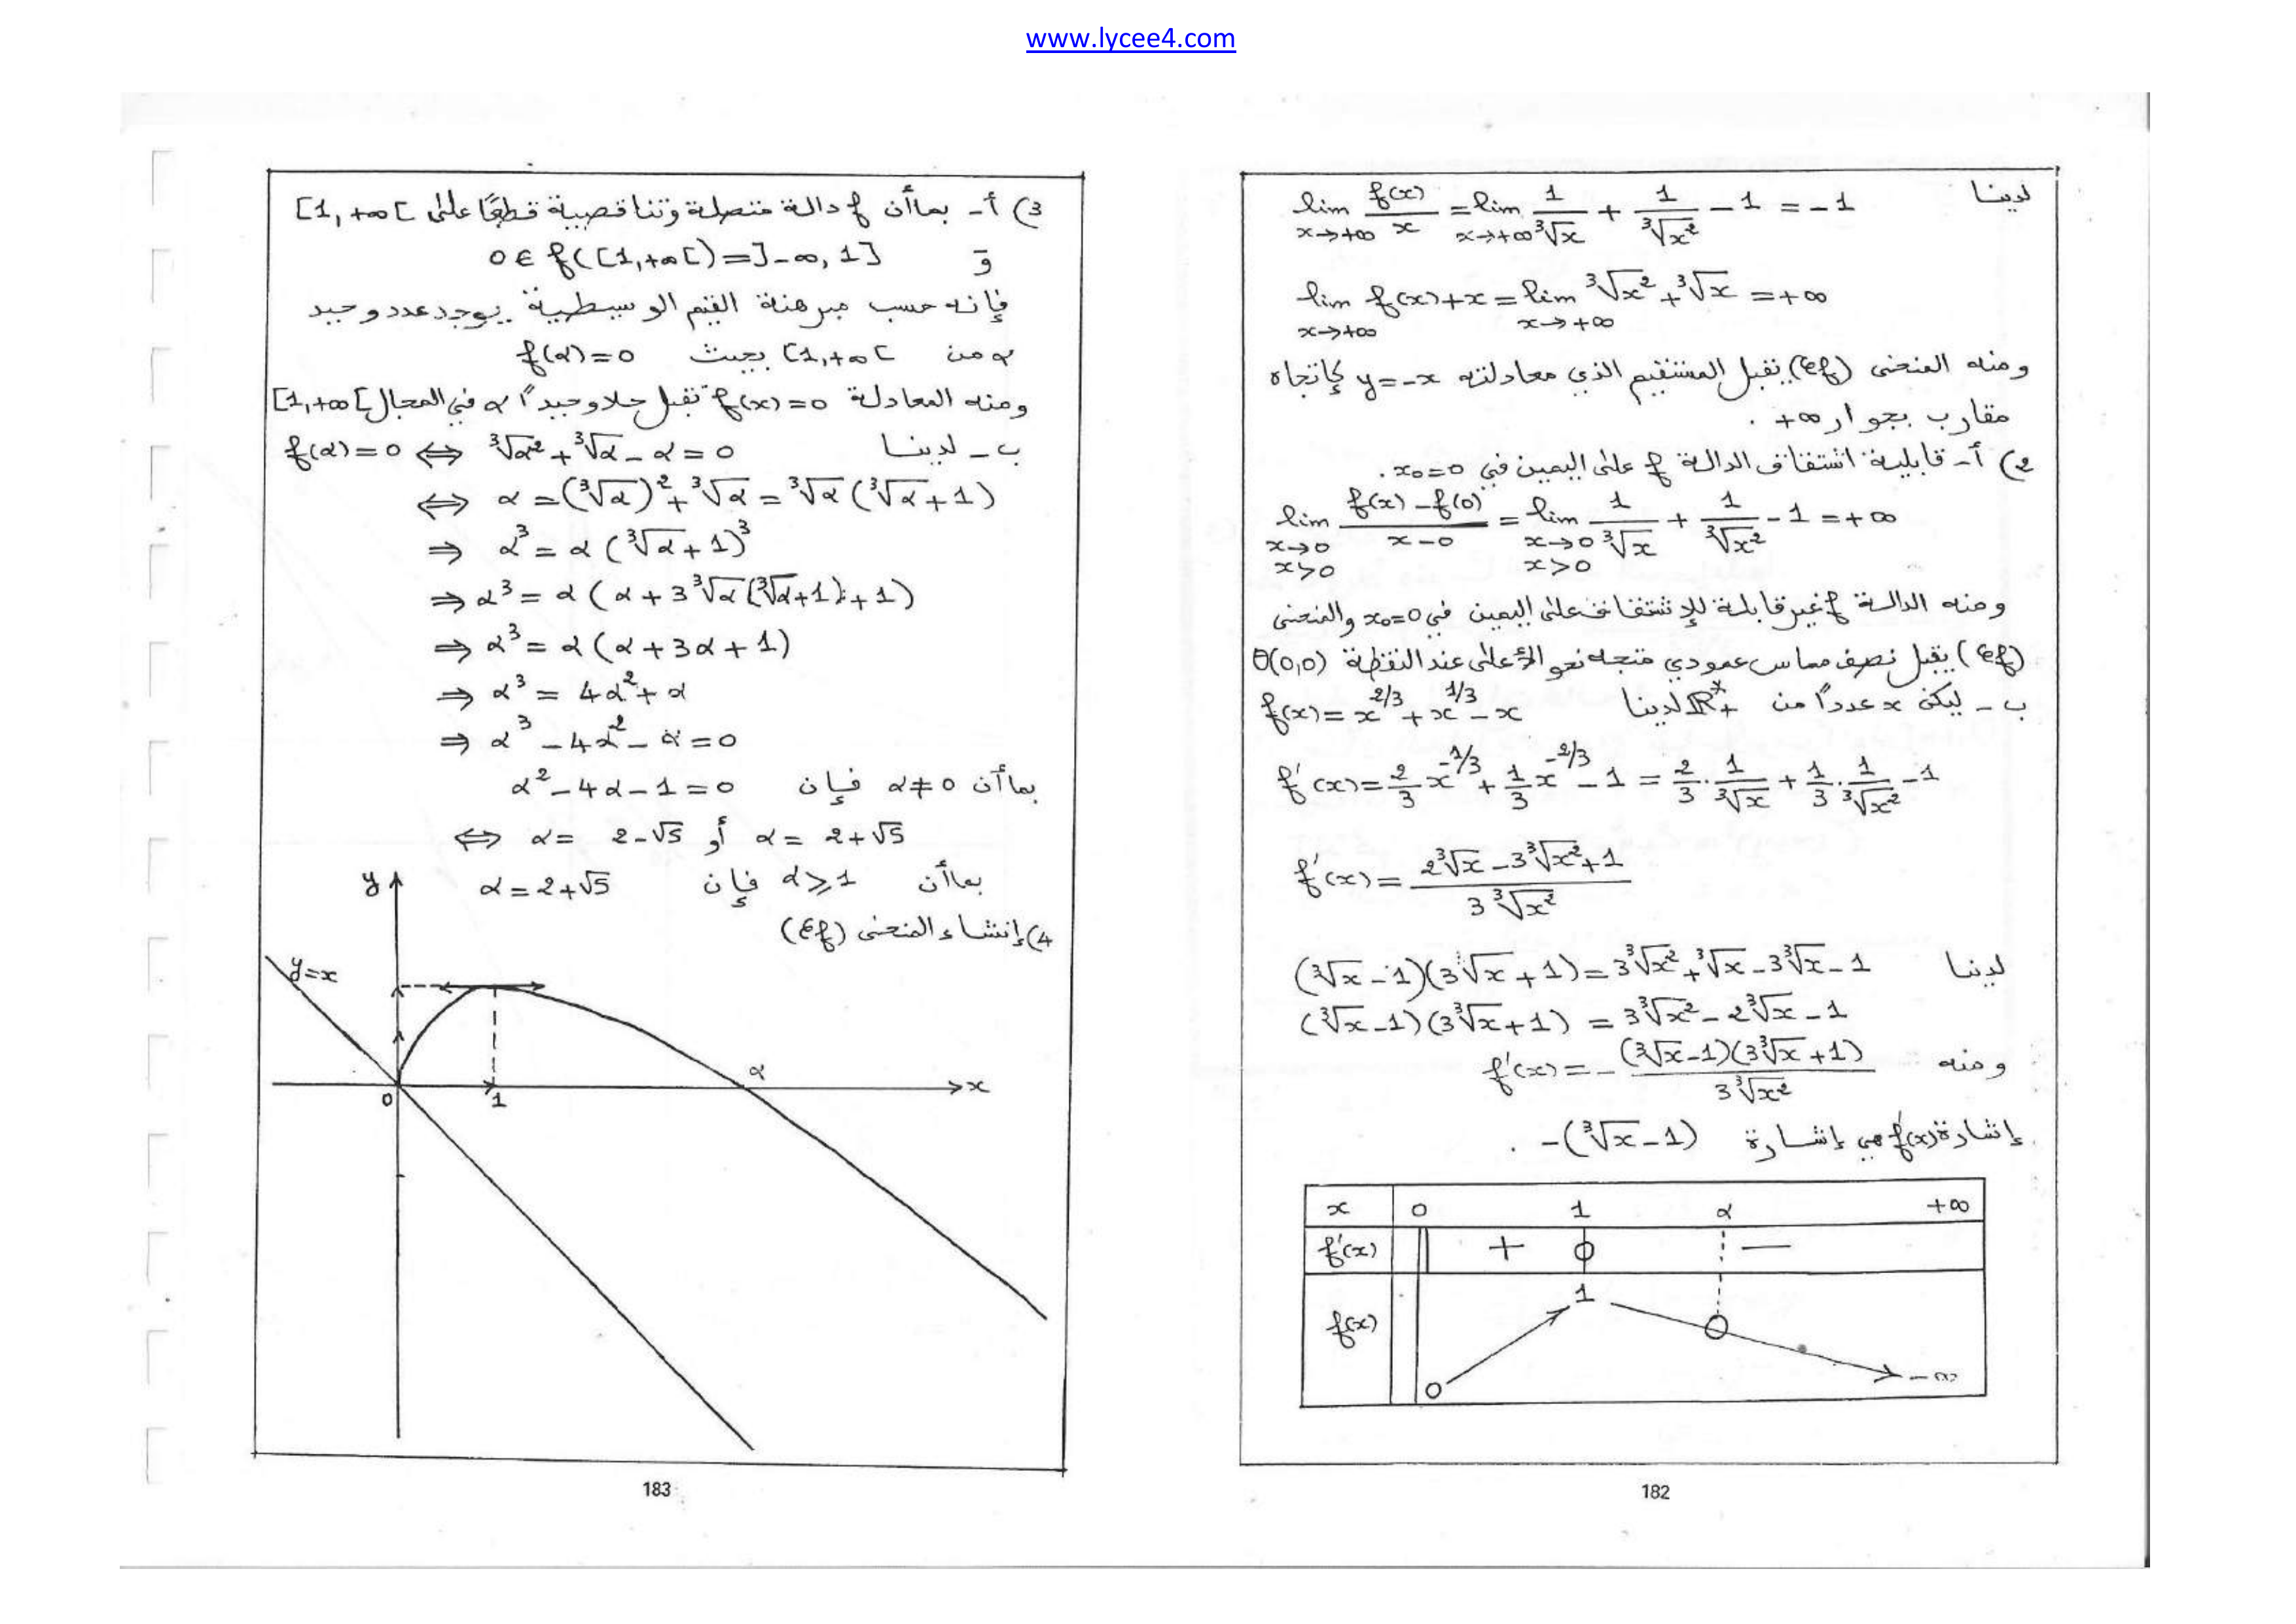 www.lycee4.com
لدينا lim_{x→+∞} f(x)/x = lim_{x→+∞} 1/∛x + 1/∛x² - 1 = -1
lim_{x→+∞} f(x)+x = lim_{x→+∞} ∛x² + ∛x = +∞
ومنه المنحنى (𝒞f) يقبل المستقيم الذي معادلته y=-x كاتجاه
مقارب بجوار +∞ .
2) أ- قابلية اشتقاق الدالة f على اليمين في x₀=0 .
lim_{x→0, x>0} (f(x)-f(0))/(x-0) = lim_{x→0, x>0} 1/∛x + 1/∛x² - 1 = +∞
ومنه الدالة f غير قابلة للإشتقاق على اليمين في x₀=0 والمنحنى
(𝒞f) يقبل نصف مماس عمودي متجه نحو الأعلى عند النقطة O(0,0)
ب - ليكن x عدداً من ℝ*₊ لدينا f(x) = x^{2/3} + x^{1/3} - x
f'(x) = 2/3 x^{-1/3} + 1/3 x^{-2/3} - 1 = 2/3 · 1/∛x + 1/3 · 1/∛x² - 1
f'(x) = (2∛x - 3∛x² + 1)/(3∛x²)
لدينا (∛x - 1)(3∛x + 1) = 3∛x² + ∛x - 3∛x - 1
(∛x - 1)(3∛x + 1) = 3∛x² - 2∛x - 1
ومنه f'(x) = - (∛x - 1)(3∛x + 1)/(3∛x²)
إشارة f'(x) هي إشارة -(∛x - 1) .
x 0 1 α +∞
f'(x) + 0 -
f(x) 0 1 0 -∞
182
3) أ- بما أن f دالة متصلة وتناقصية قطعًا على [1,+∞[
و 0 ∈ f([1,+∞[) = ]-∞, 1]
فإنه حسب مبرهنة القيم الوسيطية يوجد عدد وحيد
α من [1,+∞[ بحيث f(α)=0
ومنه المعادلة f(x)=0 تقبل حلا وحيداً α في المجال [1,+∞[
ب - لدينا f(α)=0 ⇔ ∛α² + ∛α - α = 0
⇔ α = (∛α)² + ∛α = ∛α(∛α + 1)
⇒ α³ = α(∛α + 1)³
⇒ α³ = α(α + 3∛α(∛α+1) + 1)
⇒ α³ = α(α + 3α + 1)
⇒ α³ = 4α² + α
⇒ α³ - 4α² - α = 0
بما أن α ≠ 0 فإن α² - 4α - 1 = 0
⇔ α = 2-√5 أو α = 2+√5
بما أن α ⩾ 1 فإن α = 2+√5
4) إنشاء المنحنى (𝒞f)
y
y=x
α
x
0
1
183